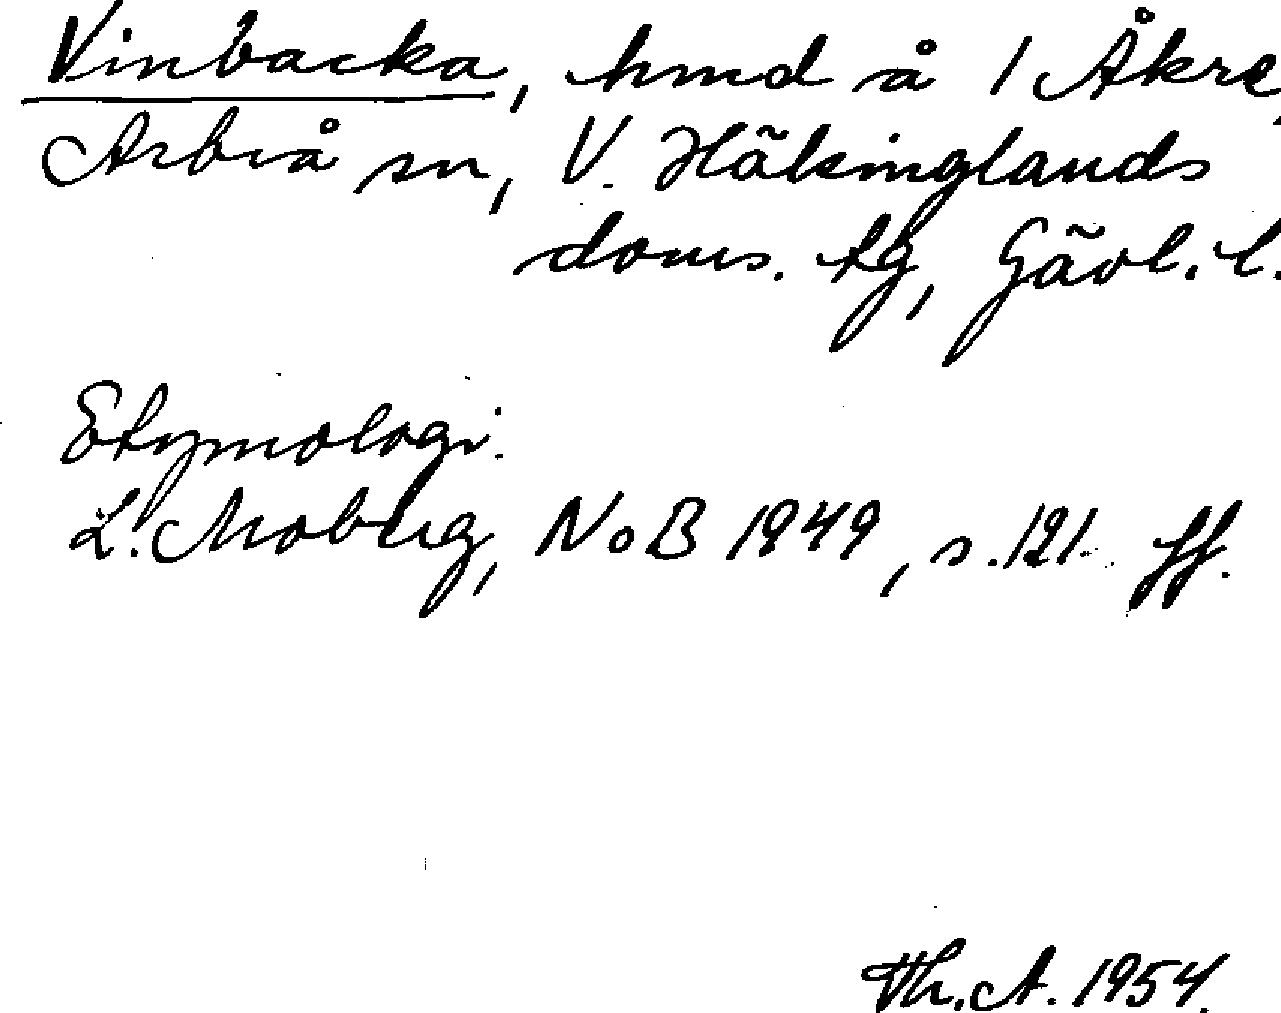 Vinbacka, hmd å 1 Åkre,
Arbrå sn, V. Hälsinglands
doms. tg, Gävl. l.
Etymologi:
L. Moberg, NoB 1949, s. 121 ff.
Th. A. 1954.